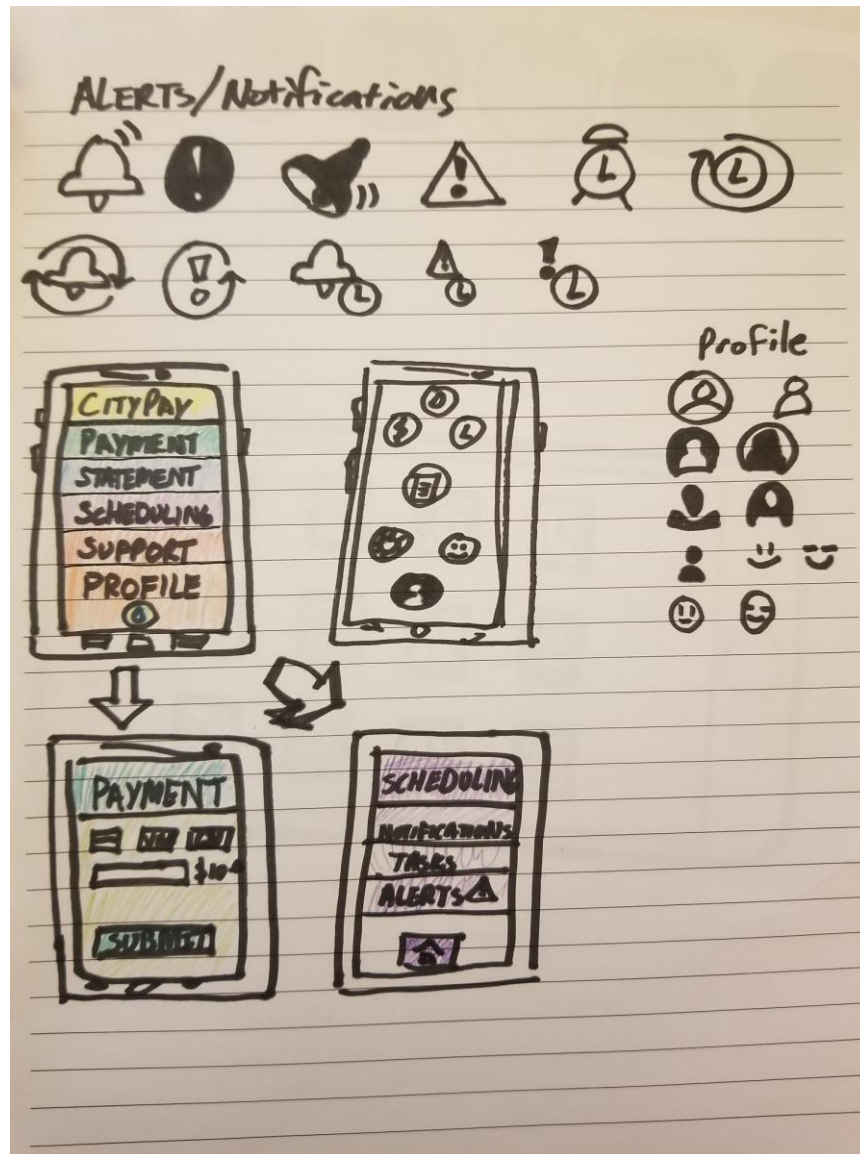 ALERTs/Notifications
Profile
CITYPAY
PAYMENT
STATEMENT
SCHEDULING
SUPPORT
PROFILE
$
PAYMENT
SUBMIT
SCHEDULING
NOTIFICATIONS
TASKS
ALERTS